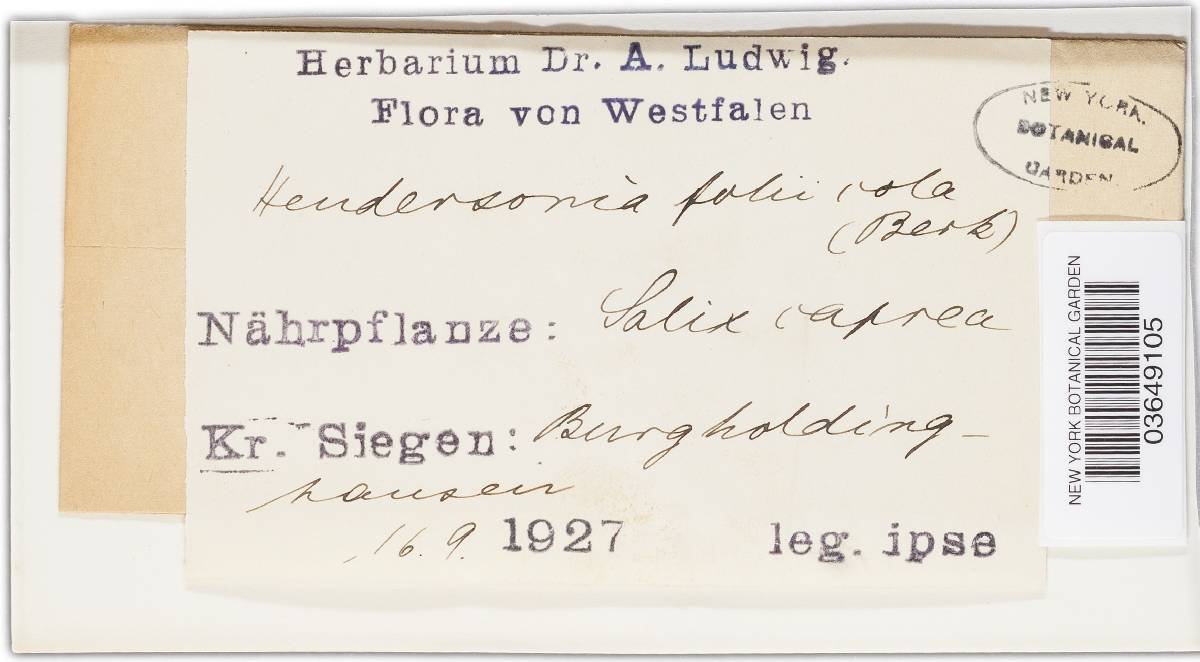 Herbarium Dr. A. Ludwig.
Flora von Westfalen
NEW YORK
BOTANICAL
GARDEN
Hendersonia foliicola
(Berk)
Nährpflanze: Salix caprea
Kr. Siegen: Burgholding-
hausen
16. 9. 1927 leg. ipse
NEW YORK BOTANICAL GARDEN
03649105